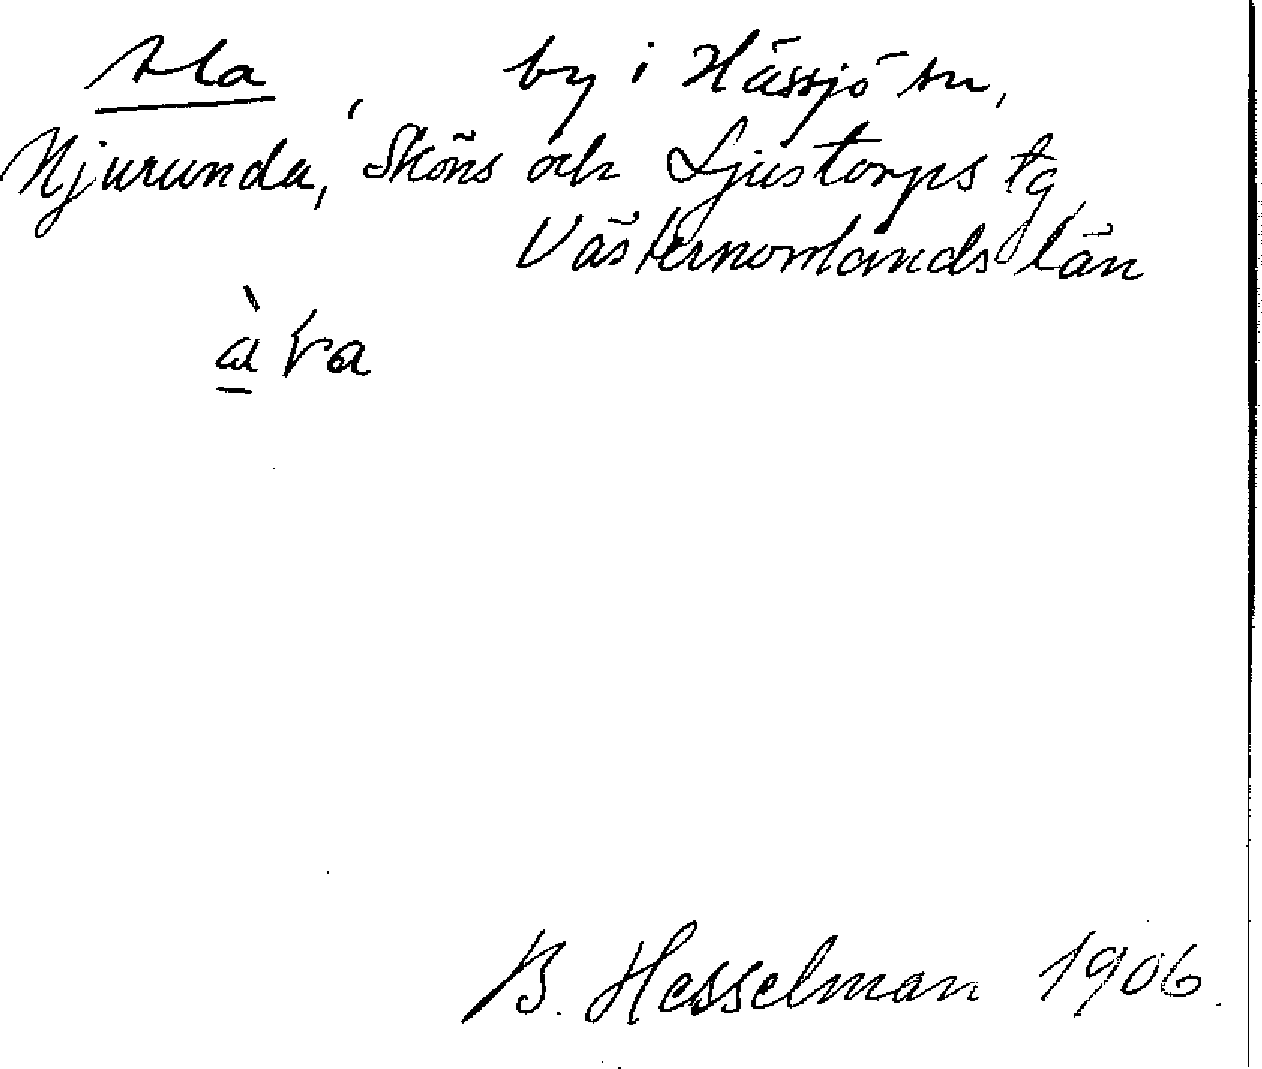 Ala, by i Hässjö sn,
Njurunda, Sköns och Ljustorps tg,
Västernorrlands län
à va
B. Hesselman 1906.